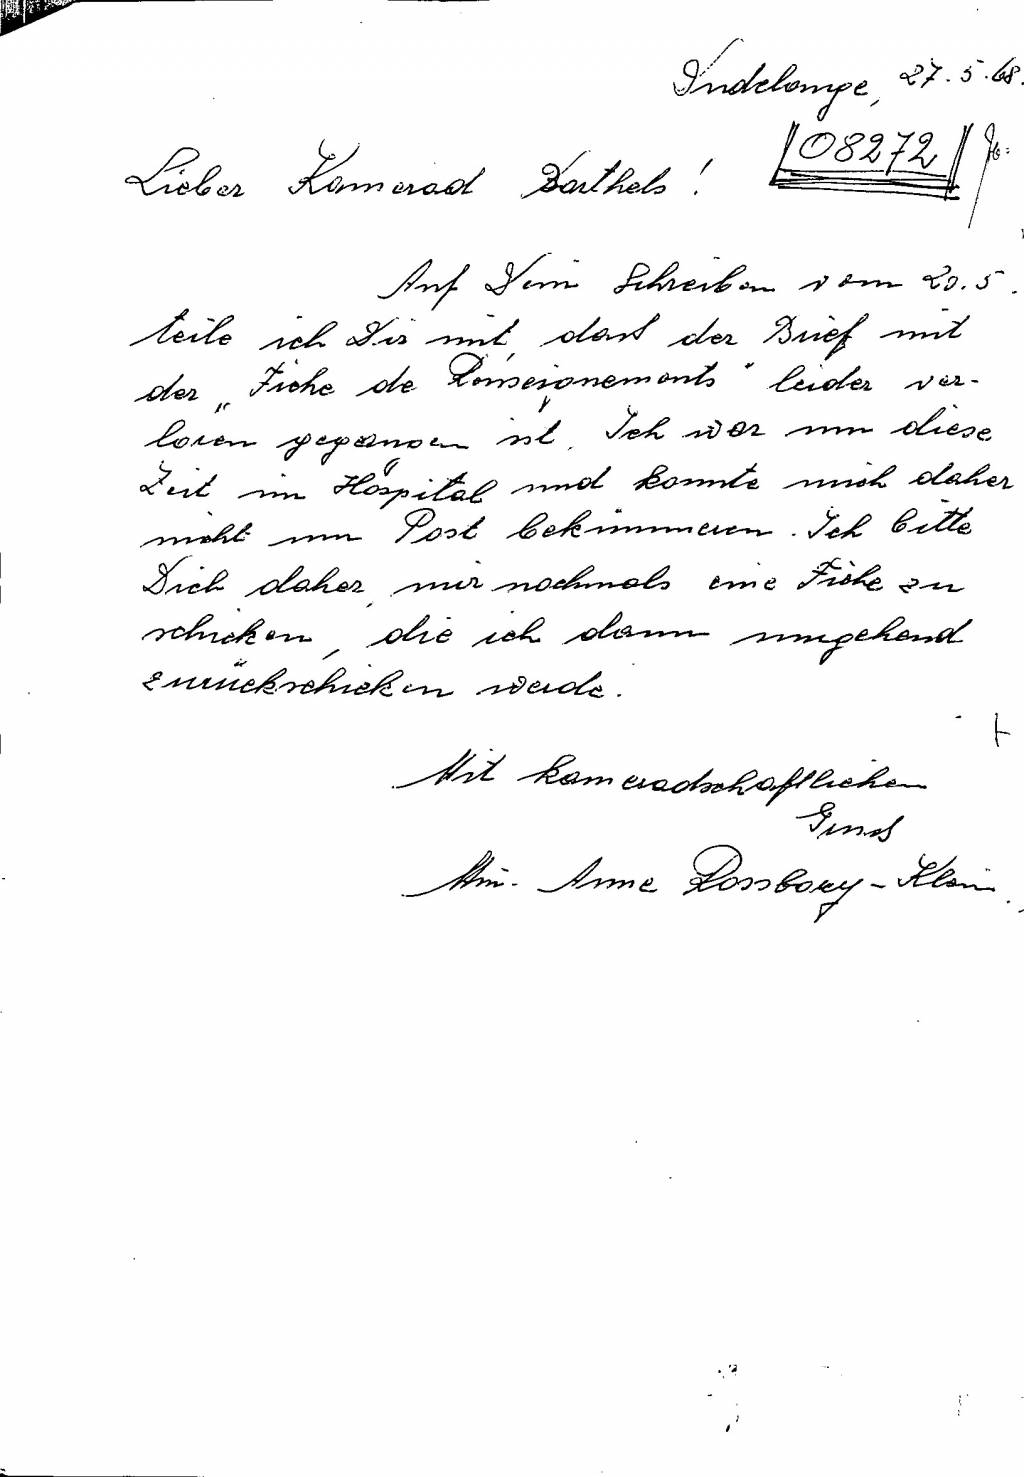 Dudelange, 27.5.68.
08272
Lieber Kamerad Barthels!
Auf Dein Schreiben vom 20.5.
teile ich Dir mit, dass der Brief mit
der „Fiche de Renseignements" leider ver-
loren gegangen ist. Ich war um diese
Zeit im Hospital und konnte mich daher
nicht um Post bekümmeren. Ich bitte
Dich daher, mir nochmals eine Fiche zu
schicken, die ich dann umgehend
zurückschicken werde.
Mit kameradschaftlichen
Gruss
Anne Rossbory-Klein.